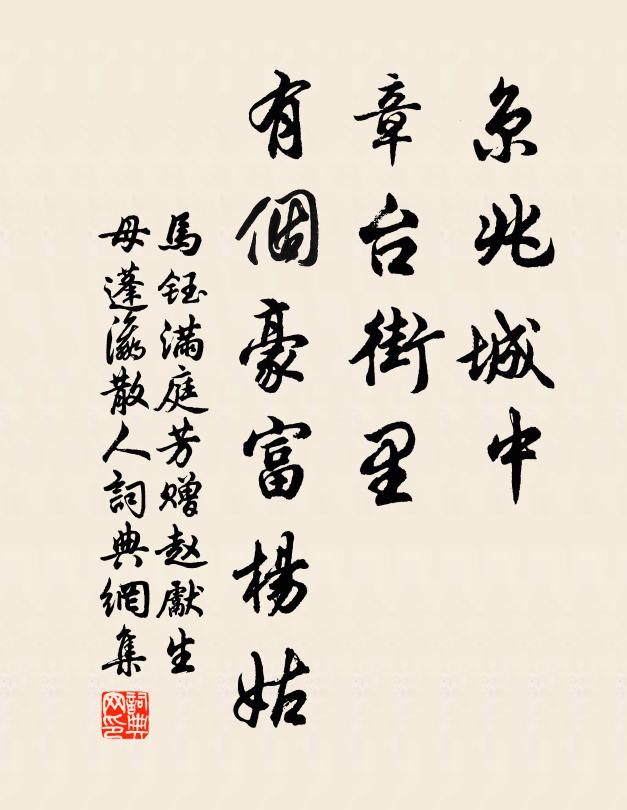 京兆城中
章台街里
有個豪富楊姑
馬鈺滿庭芳贈趙獻生
母蓬瀛散人詞典網集
詞典网印